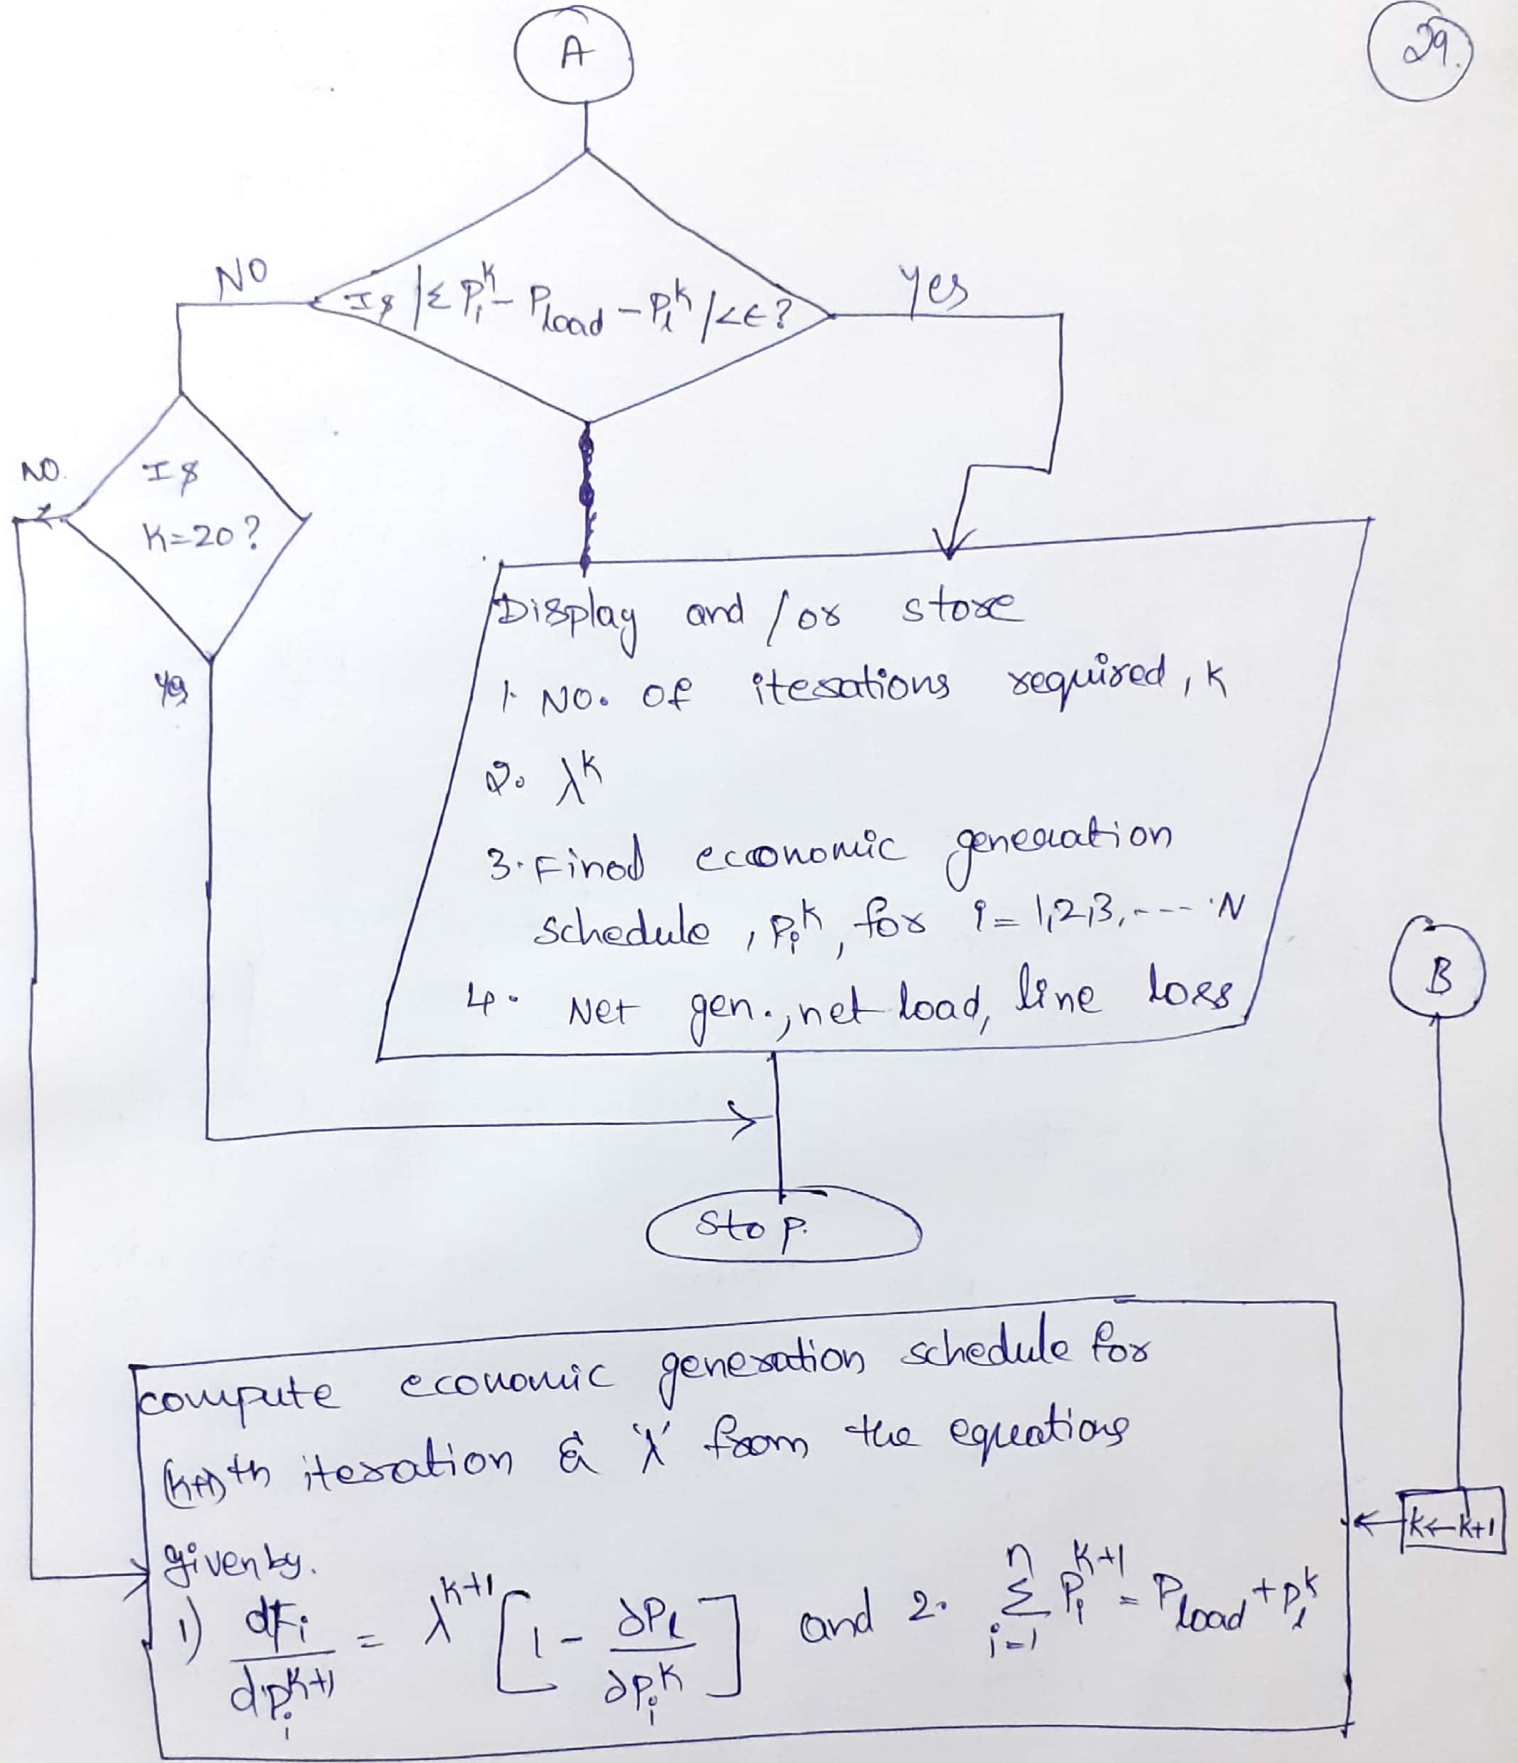 A
29.
NO
Is |Σ Pᵢᴷ - Pload - Pₗᵏ| < ϵ?
yes
NO.
Is
K=20?
yes
Display and / or store
1. NO. of iterations required, K
2. λᴷ
3. Final economic generation
schedule, Pᵢᴷ, for i = 1,2,3,---- N
4. Net gen., net load, line loss
B
Stop.
compute economic generation schedule for
(k+1)th iteration & 'λ' from the equations
given by.
k←k+1
1) dFᵢ/dPᵢᴷ⁺¹ = λᴷ⁺¹ [1 - ∂Pₗ/∂Pᵢᴷ] and 2. Σᵢ₌₁ⁿ Pᵢᴷ⁺¹ = Pload + Pₗᵏ